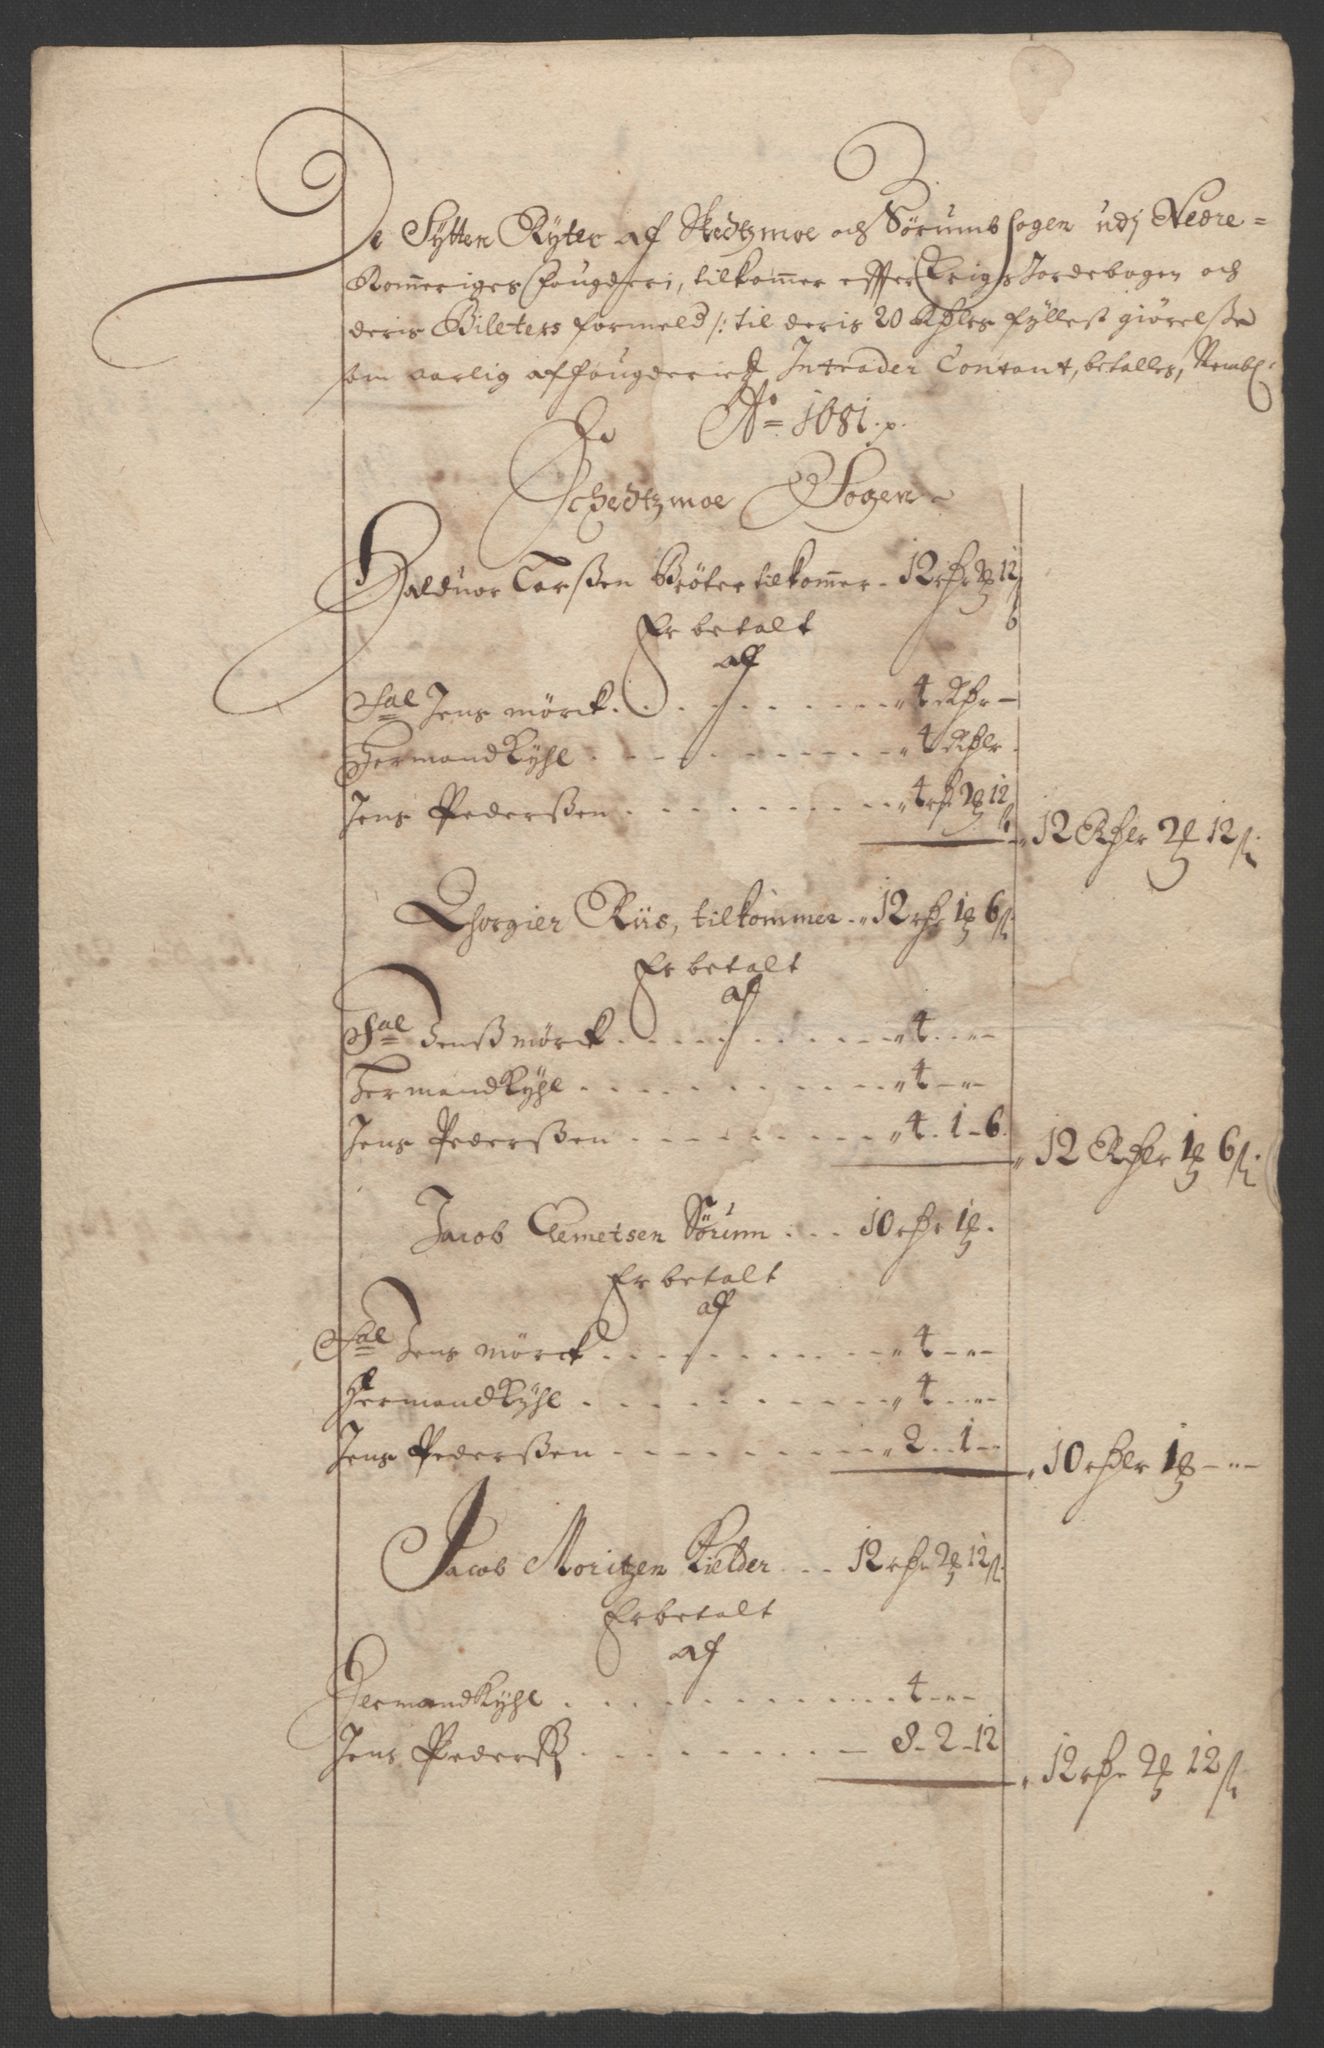 De Sÿtten Rÿter af Skedtzmoe och Sørumb sogen udj Nedre=
Romeriges fougderi, tilkommer effter Krigs Jordebogen och
deris Bileters formeld /: til deris 20 Rdlrs fÿllest giørelße
som aarlig af fougderiedz Intrader Contant, betalles, Nembl:
Ao 1681. p.
Schedtzmoe Sogen
Haldvor Larßen Brøter tilkommer - 12 rdr 2 ß 12
Er betalt
aff
Sal Jens mørck . . . . 4 Rdr -
Hermand Kÿhl . . . . 4 Rdlr -
Jens Pederßen . . . . 4 rdr 2 12 ß
12 Rdlr 2 12 ß
Thorgier Riis, tilkommer - 12 rdr 1 6 ß
Er betalt
af
Sal Jenß mørck . . . . 4 - -
Hermand Kÿhl . . . . 4 - -
Jens Pederßen . . . . 4 - 1 - 6
12 Rdlr 1 6 ß
Jacob Clemetsen Sørum . . . 10 rdr 1
Er betalt
aff
Sal Jens mørck . . . . 4 - -
Hermand Kÿhl . . . . 4 - -
Jens Pederßen . . . . 2 - 1 -
10 rdlr 1 - -
Jacob Moritzen Kielder . . . 12 rdr 2 12 ß
Er betalt
af
Hermand Kÿhl . . . . 4 - -
Jens Pederß . . . . 8 - 2 - 12
12 rdr 2 12 ß